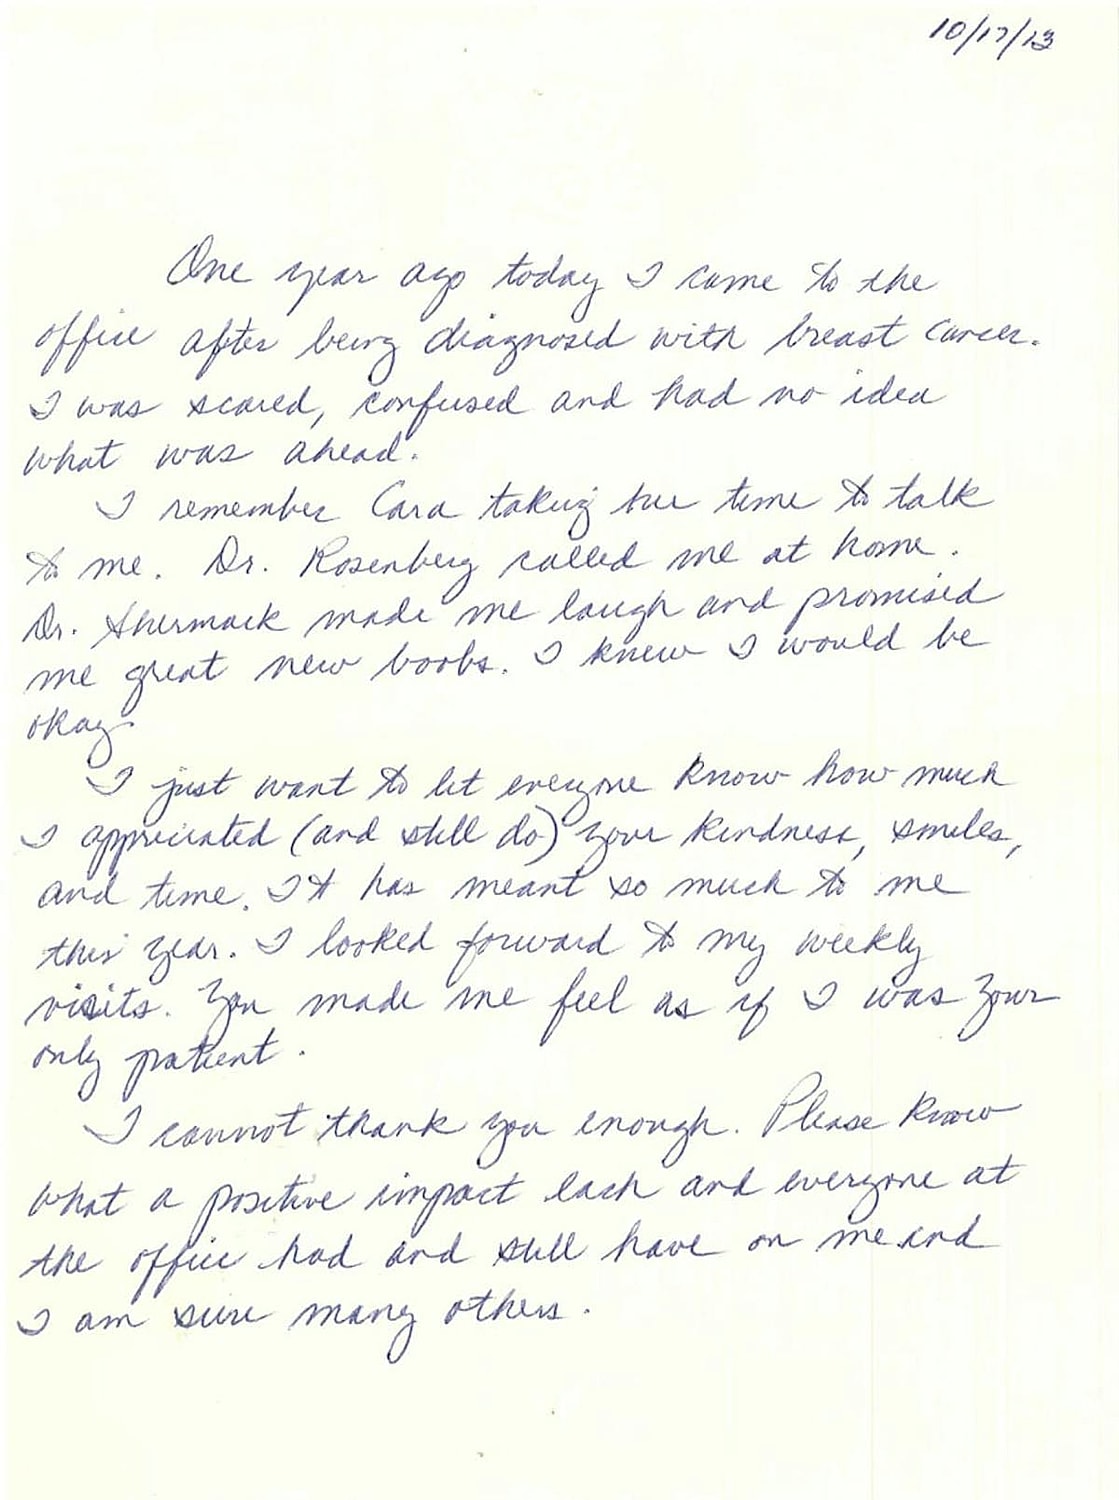 10/17/13
One year ago today I came to the
office after being diagnosed with breast cancer.
I was scared, confused and had no idea
what was ahead.
I remember Cara taking her time to talk
to me. Dr. Rosenberg called me at home.
Dr. Shermack made me laugh and promised
me great new boobs. I knew I would be
okay.
I just want to let everyone know how much
I appreciated (and still do) your kindness, smiles,
and time. It has meant so much to me
this year. I looked forward to my weekly
visits. You made me feel as if I was your
only patient.
I cannot thank you enough. Please know
what a positive impact each and everyone at
the office had and still have on me and
I am sure many others.